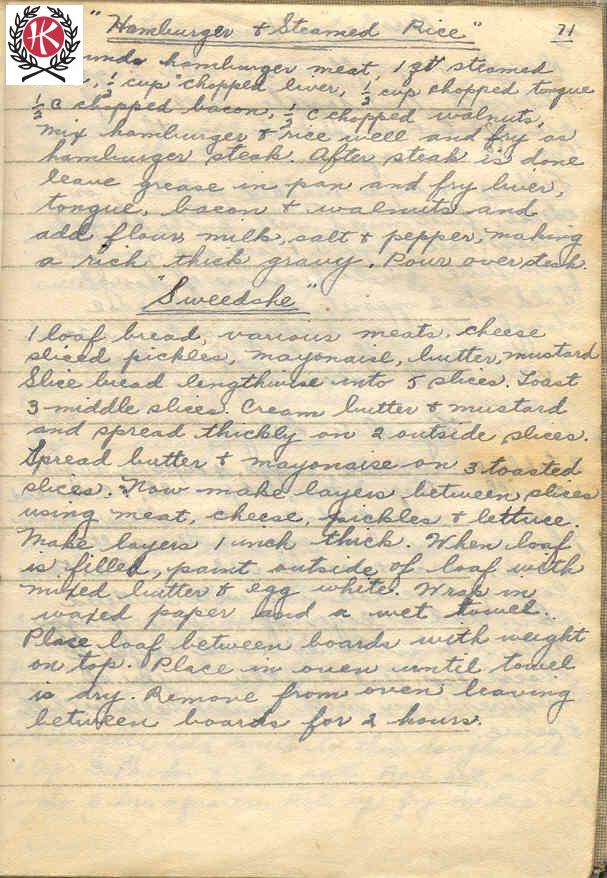 "Hamburger & Steamed Rice" 71
HK
hamburger meat, 1 qt steamed
½ cup chopped liver, ½ cup chopped tongue
½ c chopped bacon, ½ c chopped walnuts,
Mix hamburger & rice well and fry as
hamburger steak. After steak is done
leave grease in pan and fry liver,
tongue, bacon & walnuts and
add flour, milk, salt & pepper, making
a rich thick gravy. Pour over steak.
"Sweedshe"
1 loaf bread, various meats, cheese
sliced pickles, mayonaise, butter, mustard
Slice bread lengthwise into 5 slices. Toast
3 middle slices. Cream butter & mustard
and spread thickly on 2 outside slices.
Spread butter & mayonaise on 3 toasted
slices. Now make layers between slices
using meat, cheese, pickles & lettuce.
Make layers 1 inch thick. When loaf
is filled, paint outside of loaf with
mixed butter & egg white. Wrap in
waxed paper and a wet towel.
Place loaf between boards with weight
on top. Place in oven until towel
is dry. Remove from oven leaving
between boards for 2 hours.